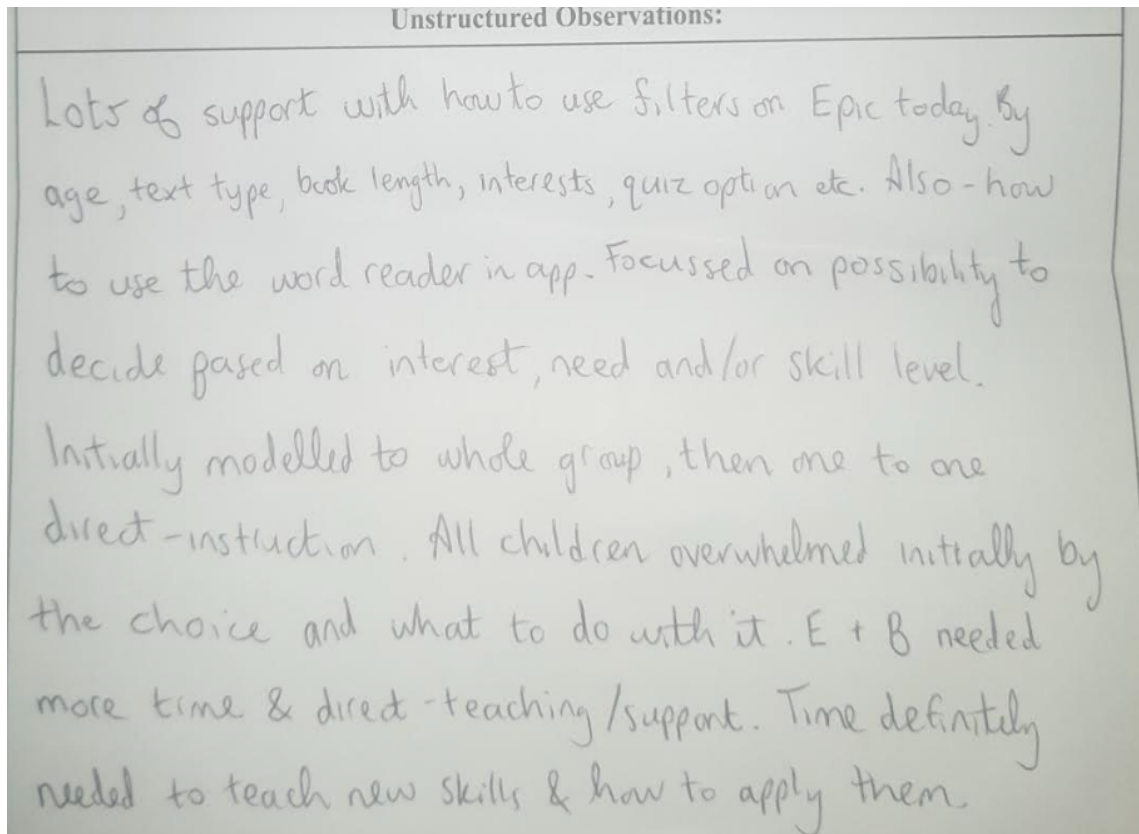 Unstructured Observations:
Lots of support with how to use filters on Epic today. By
age, text type, book length, interests, quiz option etc. Also - how
to use the word reader in app. Focussed on possibility to
decide based on interest, need and/or skill level.
Initially modelled to whole group, then one to one
direct-instruction. All children overwhelmed initially by
the choice and what to do with it. E + B needed
more time & direct-teaching/support. Time definitely
needed to teach new skills & how to apply them.